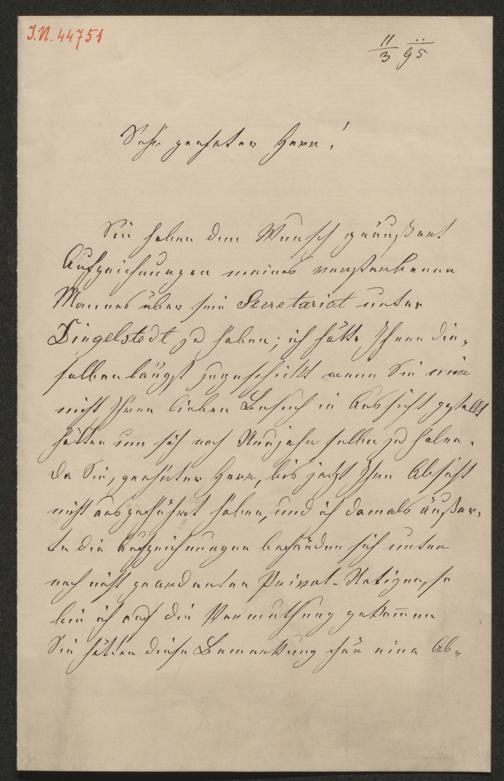 I.N. 44751
11/3 95
Sehr geehrter Herr!
Sie haben den Wunsch geäußert
Aufzeichnungen meines verstorbenen
Mannes über sein Secretariat unter
Dingelstedt zu haben; ich hätte Ihnen die-
selben längst zugeschickt wenn Sie mir
nicht Ihren lieben Besuch in Aussicht gestellt
hätten um sich nach Neujahr selbe zu holen.
Da Sie, geehrter Herr, bis jetzt Ihre Absicht
nicht ausgeführt haben, und ich damals äußer-
te die Aufzeichnungen befänden sich unter
noch nicht geordneten Privat-Notizen, so
bin ich auf die Vermuthung gekommen
Sie hätten diese Bemerkung für eine Ab-